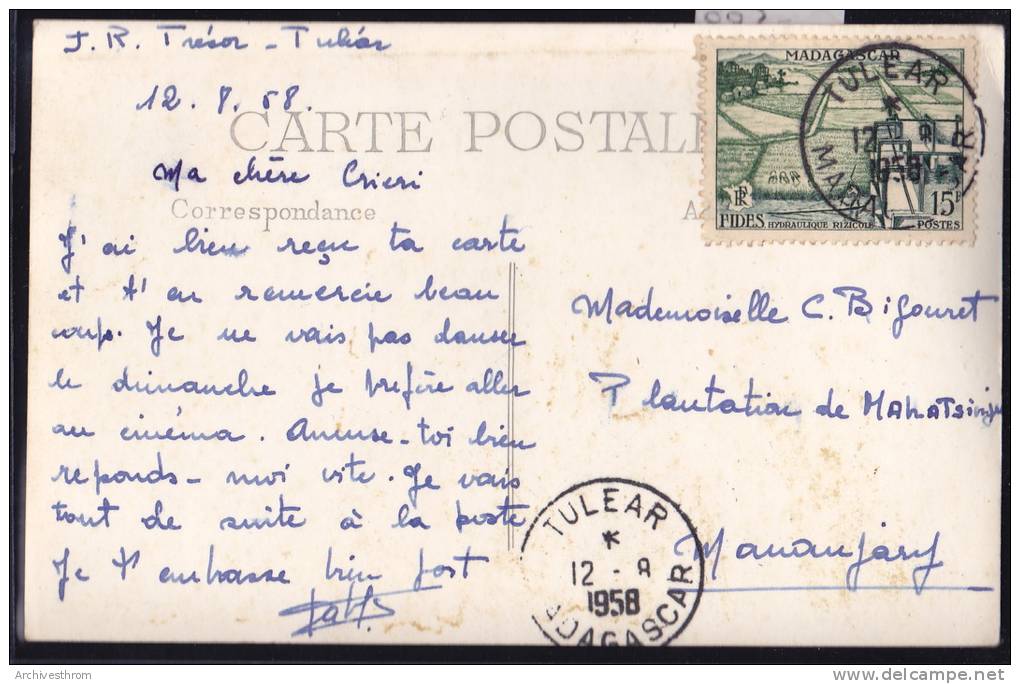 J. R. Trésor - Tuléar
12. 8. 58.
CARTE POSTAL
Ma chère Crieri
Correspondance
J'ai bien reçu ta carte
et t'en remercie beau
coup. Je ne vais pas danser
le dimanche je prefère aller
au cinéma. Amuse-toi bien
reponds-moi vite. Je vais
tout de suite à la poste
Je t'embrasse bien fort
MADAGASCAR
RF
15F
FIDES HYDRAULIQUE RIZICOLE POSTES
TULEAR
12 - 8
1958
Mademoiselle C. Bigouret
Plantation de MAHATSinju
Mananjary
TULEAR
12 - 8
1958
ADAGASCAR
Archivesthrom
delcampe.net